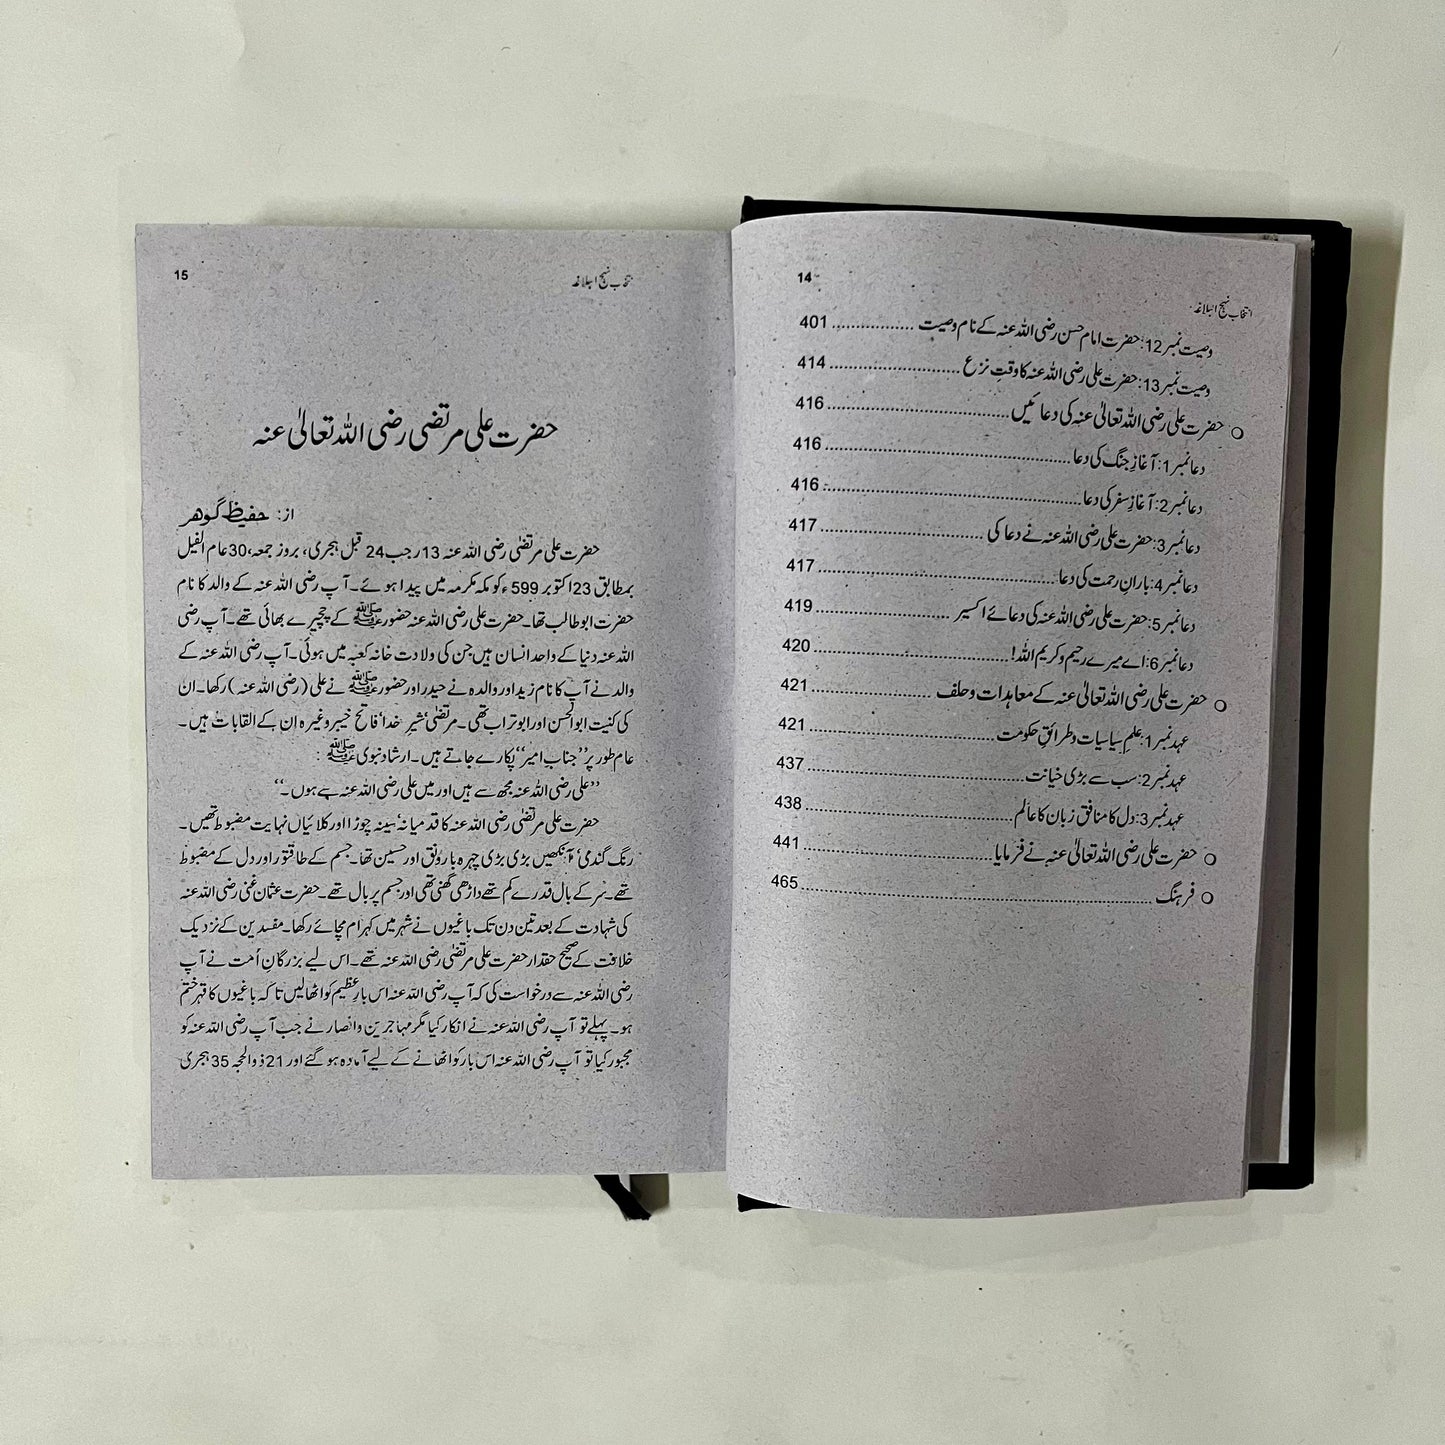 14
انتخاب نہج البلاغہ
وصیت نمبر 12: حضرت امام حسن رضی اللہ عنہ کے نام وصیت ................ 401
وصیت نمبر 13: حضرت علی رضی اللہ عنہ کا وقتِ نزع ................ 414
○ حضرت علی رضی اللہ تعالیٰ عنہ کی دعائیں ................ 416
دعا نمبر 1: آغازِ جنگ کی دعا ................ 416
دعا نمبر 2: آغازِ سفر کی دعا ................ 416
دعا نمبر 3: حضرت علی رضی اللہ عنہ نے دعا کی ................ 417
دعا نمبر 4: بارانِ رحمت کی دعا ................ 417
دعا نمبر 5: حضرت علی رضی اللہ عنہ کی دعائے اکسیر ................ 419
دعا نمبر 6: اے میرے رحیم و کریم اللہ! ................ 420
○ حضرت علی رضی اللہ تعالیٰ عنہ کے معاہدات و حلف ................ 421
عہد نمبر 1: علمِ سیاسیات و طرائقِ حکومت ................ 421
عہد نمبر 2: سب سے بڑی خیانت ................ 437
عہد نمبر 3: دل کا منافق زبان کا عالم ................ 438
○ حضرت علی رضی اللہ تعالیٰ عنہ نے فرمایا ................ 441
○ فرہنگ ................ 465
انتخاب نہج البلاغہ
15
حضرت علی مرتضی رضی اللہ تعالیٰ عنہ
از: حفیظ گوہر
حضرت علی مرتضیٰ رضی اللہ عنہ 13 رجب 24 قبل ہجری، بروز جمعہ، 30 عام الفیل
بمطابق 23 اکتوبر 599ء کو مکہ مکرمہ میں پیدا ہوئے۔ آپ رضی اللہ عنہ کے والد کا نام
حضرت ابوطالب تھا۔ حضرت علی رضی اللہ عنہ حضور ﷺ کے چچیرے بھائی تھے۔ آپ رضی
اللہ عنہ دنیا کے واحد انسان ہیں جن کی ولادت خانہ کعبہ میں ہوئی۔ آپ رضی اللہ عنہ کے
والد نے آپ کا نام زید اور والدہ نے حیدر اور حضور ﷺ نے علی (رضی اللہ عنہ) رکھا۔ ان
کی کنیت ابوالحسن اور ابوتراب تھی۔ مرتضیٰ، شیر خدا، فاتح خیبر وغیرہ ان کے القابات ہیں۔
عام طور پر ’’جناب امیر‘‘ پکارے جاتے ہیں۔ ارشاد نبوی ﷺ :
’’علی رضی اللہ عنہ مجھ سے ہیں اور میں علی رضی اللہ عنہ سے ہوں۔‘‘
حضرت علی مرتضیٰ رضی اللہ عنہ کا قد میانہ، سینہ چوڑا اور کلائیاں نہایت مضبوط تھیں۔
رنگ گندمی، آنکھیں بڑی بڑی چہرہ بارونق اور حسین تھا۔ جسم کے طاقتور اور دل کے مضبوط
تھے۔ سر کے بال قدرے کم تھے داڑھی گھنی تھی اور جسم پر بال تھے۔ حضرت عثمان غنی رضی اللہ عنہ
کی شہادت کے بعد تین دن تک باغیوں نے شہر میں کہرام مچائے رکھا۔ مفسدین کے نزدیک
خلافت کے صحیح حقدار حضرت علی مرتضیٰ رضی اللہ عنہ تھے۔ اس لیے بزرگانِ اُمت نے آپ
رضی اللہ عنہ سے درخواست کی کہ آپ رضی اللہ عنہ اس بارِ عظیم کو اٹھا لیں تاکہ باغیوں کا قہر ختم
ہو۔ پہلے تو آپ رضی اللہ عنہ نے انکار کیا مگر مہاجرین وانصار نے جب آپ رضی اللہ عنہ کو
مجبور کیا تو آپ رضی اللہ عنہ اس بار کو اٹھانے کے لیے آمادہ ہو گئے اور 21 ذوالحجہ 35 ہجری